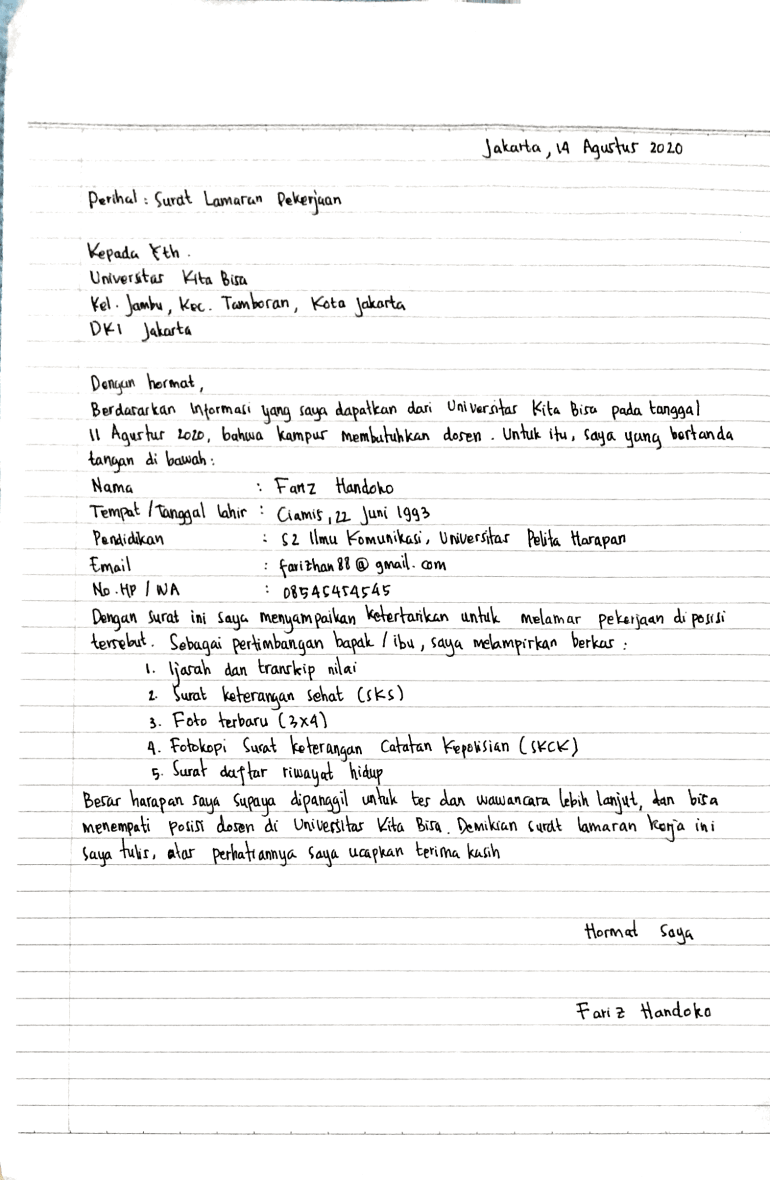 Jakarta, 14 Agustus 2020
Perihal : Surat Lamaran Pekerjaan
Kepada Yth.
Universitas Kita Bisa
Kel. Jambu, Kec. Tamboran, Kota Jakarta
DKI Jakarta
Dengan hormat,
Berdasarkan Informasi yang saya dapatkan dari Universitas Kita Bisa pada tanggal
11 Agustus 2020, bahwa kampus membutuhkan dosen. Untuk itu, saya yang bertanda
tangan di bawah :
Nama : Fariz Handoko
Tempat / Tanggal lahir : Ciamis, 22 Juni 1993
Pendidikan : S2 Ilmu Komunikasi, Universitas Pelita Harapan
Email : farizhan88@gmail.com
No. HP / WA : 08545454545
Dengan surat ini saya menyampaikan ketertarikan untuk melamar pekerjaan di posisi
tersebut. Sebagai pertimbangan bapak / ibu, saya melampirkan berkas :
1. Ijasah dan transkip nilai
2. Surat keterangan sehat (SKS)
3. Foto terbaru (3x4)
4. Fotokopi Surat keterangan Catatan Kepolisian (SKCK)
5. Surat daftar riwayat hidup
Besar harapan saya supaya dipanggil untuk tes dan wawancara lebih lanjut, dan bisa
menempati posisi dosen di Universitas Kita Bisa. Demikian surat lamaran kerja ini
saya tulis, atas perhatiannya saya ucapkan terima kasih
Hormat Saya
Fariz Handoko